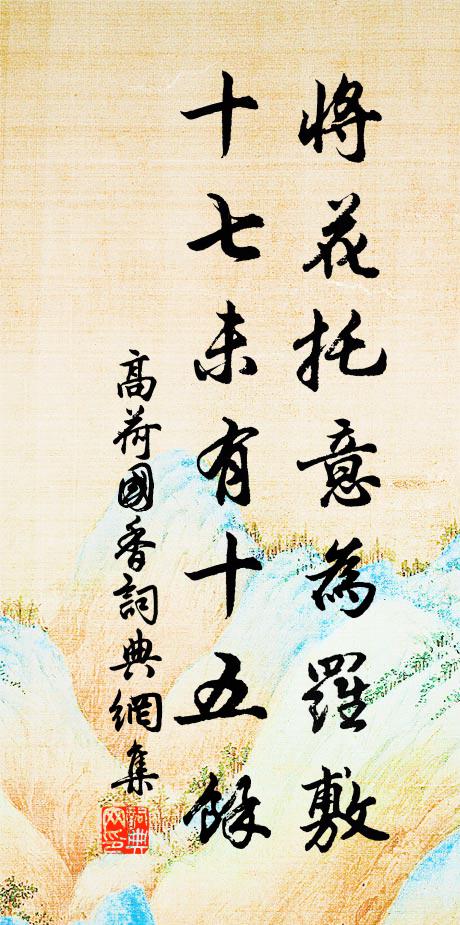 將花托意為羅敷
十七未有十五餘
高荷國香詞典網集
詞典網印